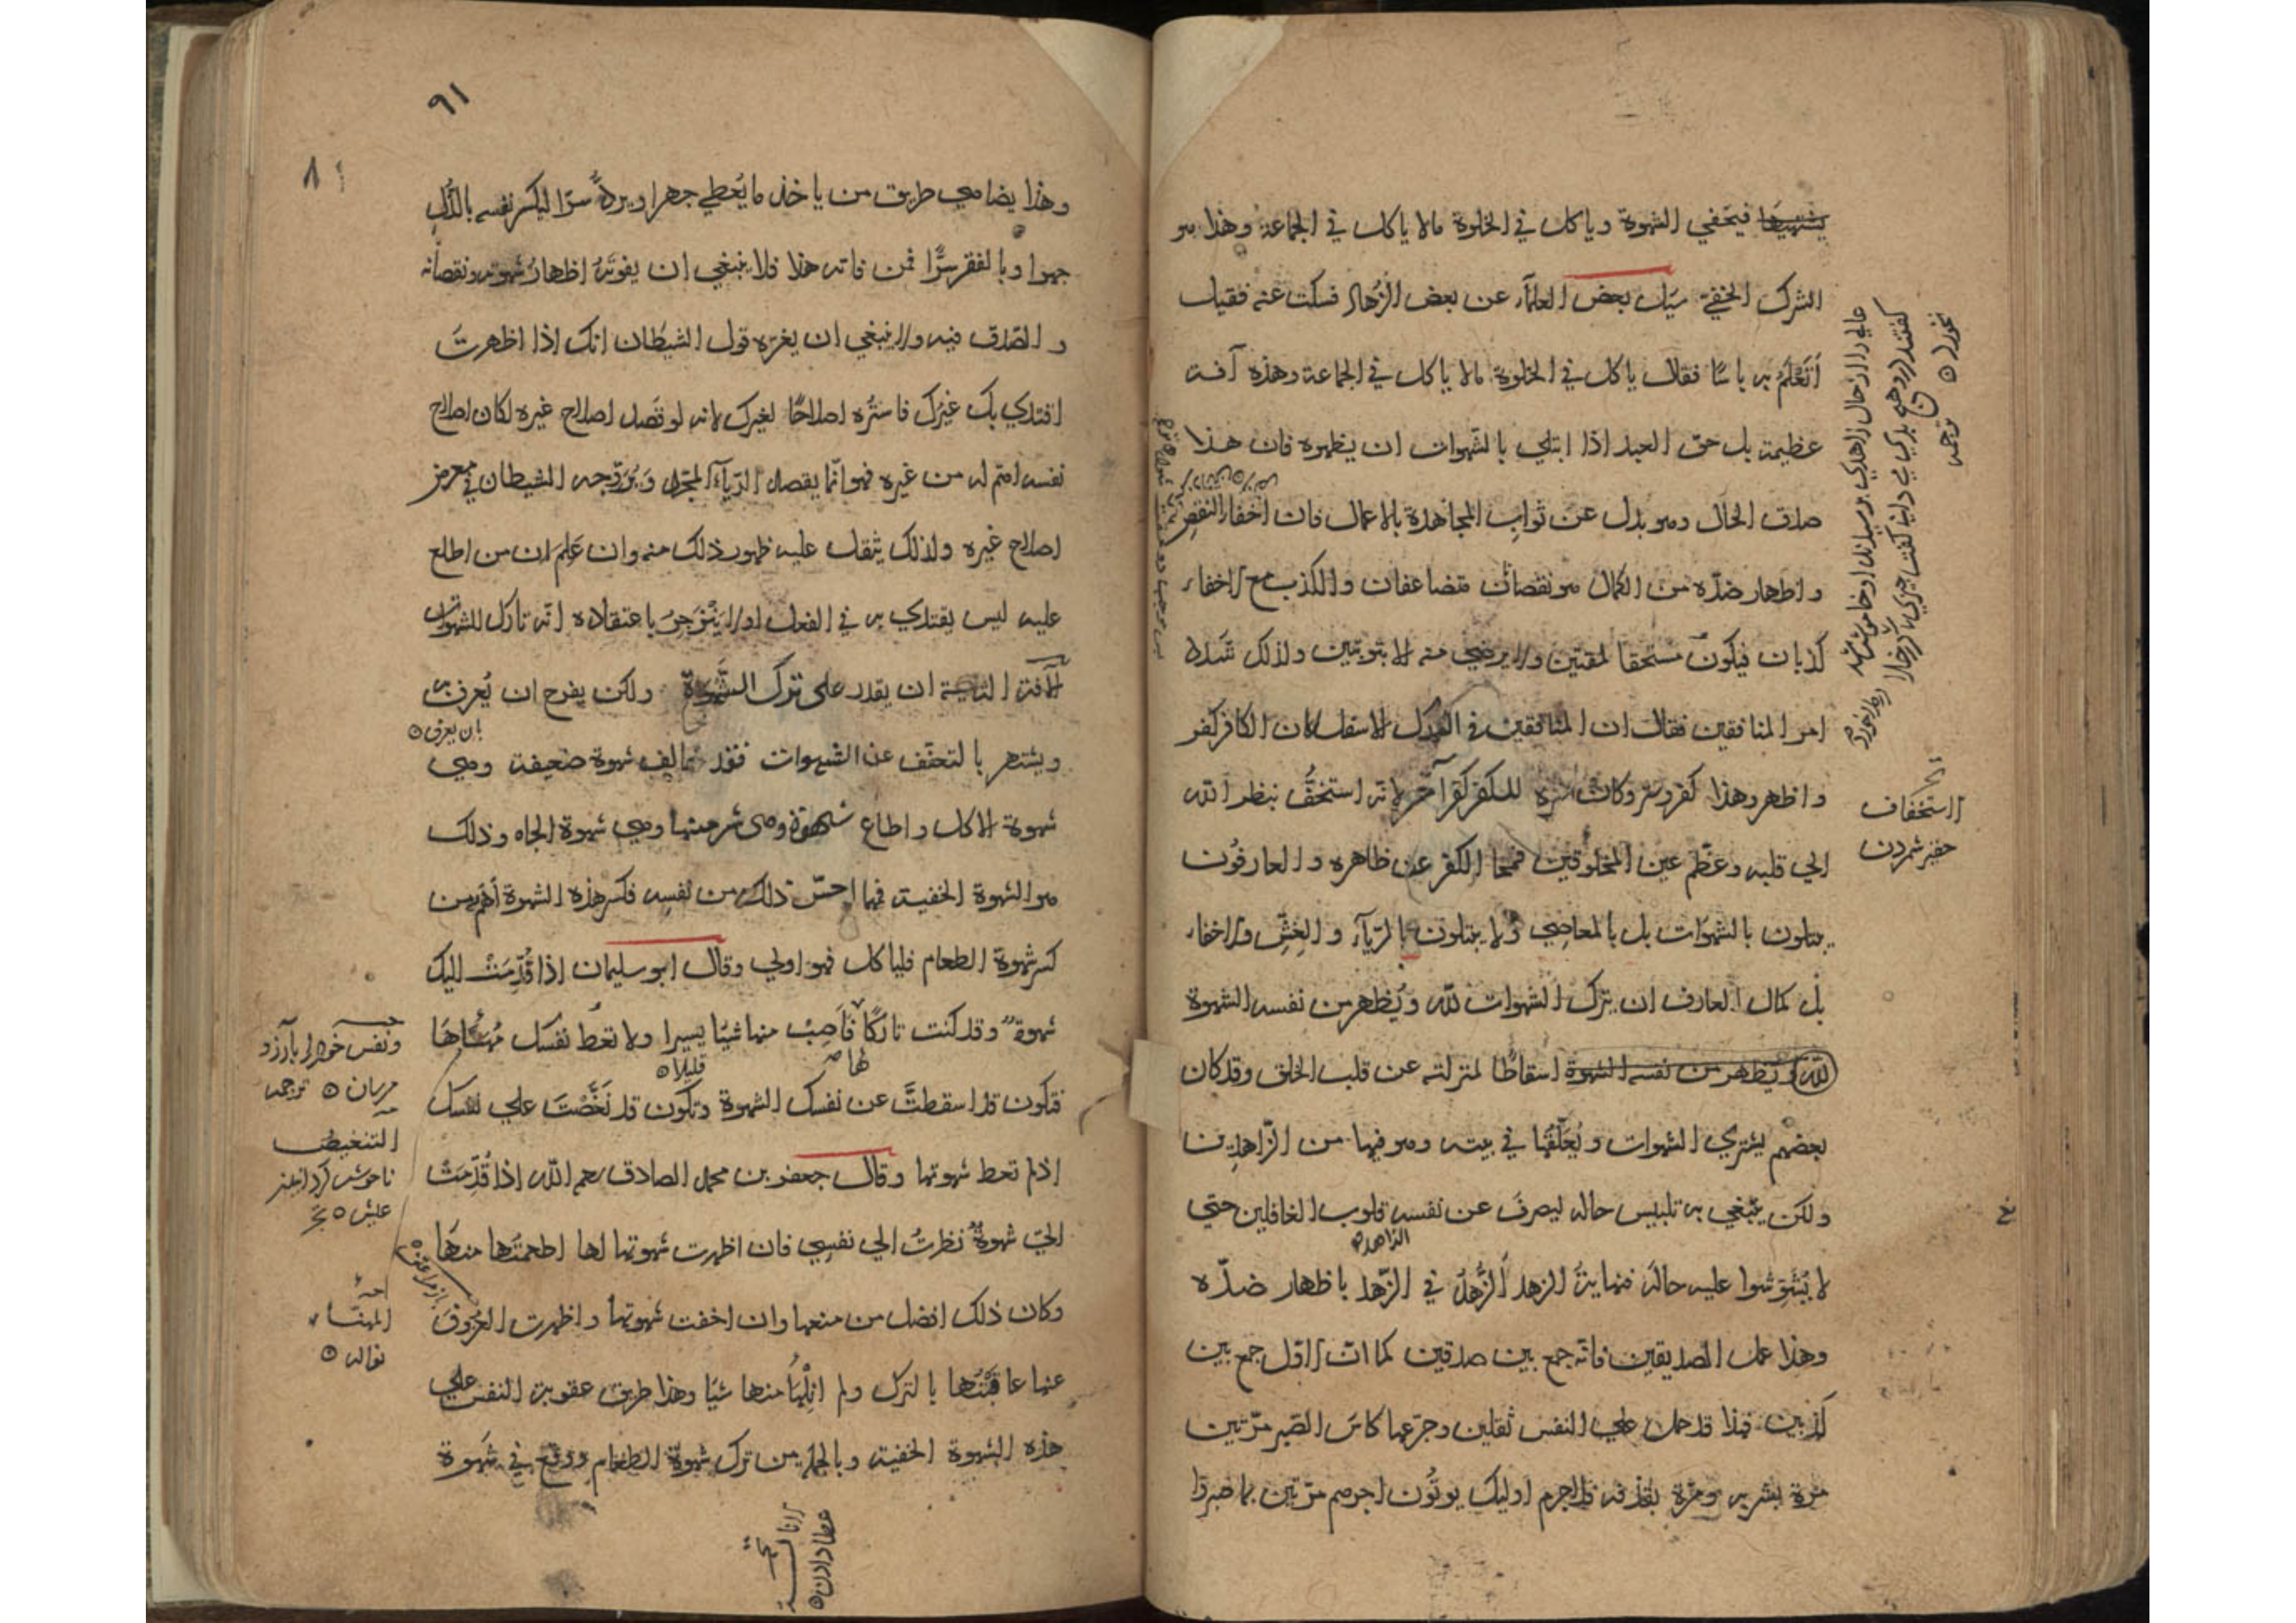 يشتهيها فيخفي الشهوة وياكل في الخلوة مالا ياكل في الجماعة وهذا هو
الشرك الخفي سيل بعض العلماء عن بعض الزهاد فسكت عنه فقيل
أتعلم به باسًا فقال ياكل في الخلوة مالا ياكل في الجماعة وهذه آفة
عظيمة بل حق العبد اذا ابتلي بالشهوات ان يظهره فان هذا
صدق الحال وهو بدل عن ثواب المجاهدة بالاعمال فان اخفاء النقص
واظهار ضدّه من الكمال هو نقصانان متضاعفان والكذب مع الاخفاء
كذبان فيكون مستحقا لمقتين ولا يرضي منه الا بتوبتين ولذلك شدد
امر المنافقين فقال ان المنافقين في الدرك الاسفل لان الكافر كفر
واظهر وهذا كفر وستر وكان ستره للكفر كفرًا آخر لانه استخفّ بنظر الله
الي قلبه وعظّم عين المخلوقين فمحا الكفر عن ظاهره والعارفون
يبتلون بالشهوات بل بالمعاصي ولا يبتلون بالريآء والغشّ والاخفاء
بل كمال العارف ان يترك الشهوات لله ويُظهر من نفسه الشهوة
لله ويظهر من نفسه الشهوة اسقاطًا لمنزلته عن قلب الخلق وقد كان
بعضهم يشتري الشهوات ويُعلّقها في بيته وهو فيها من الزّاهدين
ولكن ينبغي به تلبيس حاله ليصرفَ عن نفسه قلوب الغافلين حتي
الزاهد
لا يُشوّشوا عليه حاله فنهاية الزهد الزُّهدُ في الزّهد باظهار ضدّه
وهذا عمل الصديقين فانّه جمع بين صدقين كما انّ الاوّل جمع بين
كذبين فهذا قد حمل علي النفس ثقلين وجرّعها كاسَ الصّبر مرّتين
مرّة بشربه ومرّة بقذفه فلاجرم اوليك يوتُون اجرهم مرّتين بما صبروا
الاستخفاف
حقير شمردن
٩١
٨١
وهذا يضاهي طريق من ياخذ ما يُعطي جهرا ويردّه سرّا ليكسر نفسه بالذّل
جهرا وبالفقر سرًّا فمن فاته هذا فلا ينبغي ان يفوته اظهارُ شهوته ونقصانه
والصّدق فيه ولا ينبغي ان يغرّه قول الشيطان انك اذا اظهرتَ
اقتدي بك غيرُك فاستره اصلاحًا لغيرك لانه لو قصد اصلاح غيره لكان اصلاح
نفسه اهتم له من غيره فهو انّما يقصد الريآء المجرّد ويُروّجه الشيطان في معرض
اصلاح غيره ولذلك يثقل عليه ظهور ذلك منه وان عَلِمَ ان من اطلع
عليه ليس يقتدي به في الفعل اولا يَنْزجِرُ باعتقاده انّه تارك للشهوات
الآفة الثانية ان يقدر على ترك الشّهوة ولكن يفرح ان يُعرف به
بان يعرف
ويشتهر بالتعفّف عن الشهوات فقد خالف شهوة ضعيفة وهي
شهوة الاكل واطاع شهوة وهى شر منها وهي شهوة الجاه وذلك
هو الشهوة الخفية فمهما احسّ ذلك من نفسه فكسر هذه الشهوة اهم من
كسر شهوة الطعام فلياكل فهو اولي وقال ابو سليمان اذا قُدّمَتْ اليك
شهوة وقد كنت تاركًا فاَصِبْ منها شيًا يسيرا ولا تعط نفسك مُهنّاها
لها قليلا
فتكون قد اسقطتَّ عن نفسك الشهوة وتكون قد نَغَّصْتَ علي نفسك
اذ لم تعط شهوتها وقال جعفر بن محمد الصادق رحمه الله اذا قُدّمَتْ
اليّ شهوةٌ نظرتُ الي نفسي فان اظهرت شهوتها لها اطعمتُها منها
وكان ذلك افضل من منعها وان اخفت شهوتها واظهرت العزوف
عنها عاقبتُها بالترك ولم انِلْها منها شيا وهذا طريق عقوبة النفس علي
هذه الشهوة الخفية وبالجملة من ترك شهوة الطعام ووقع في شهوة
التنغيص
عطا دادن